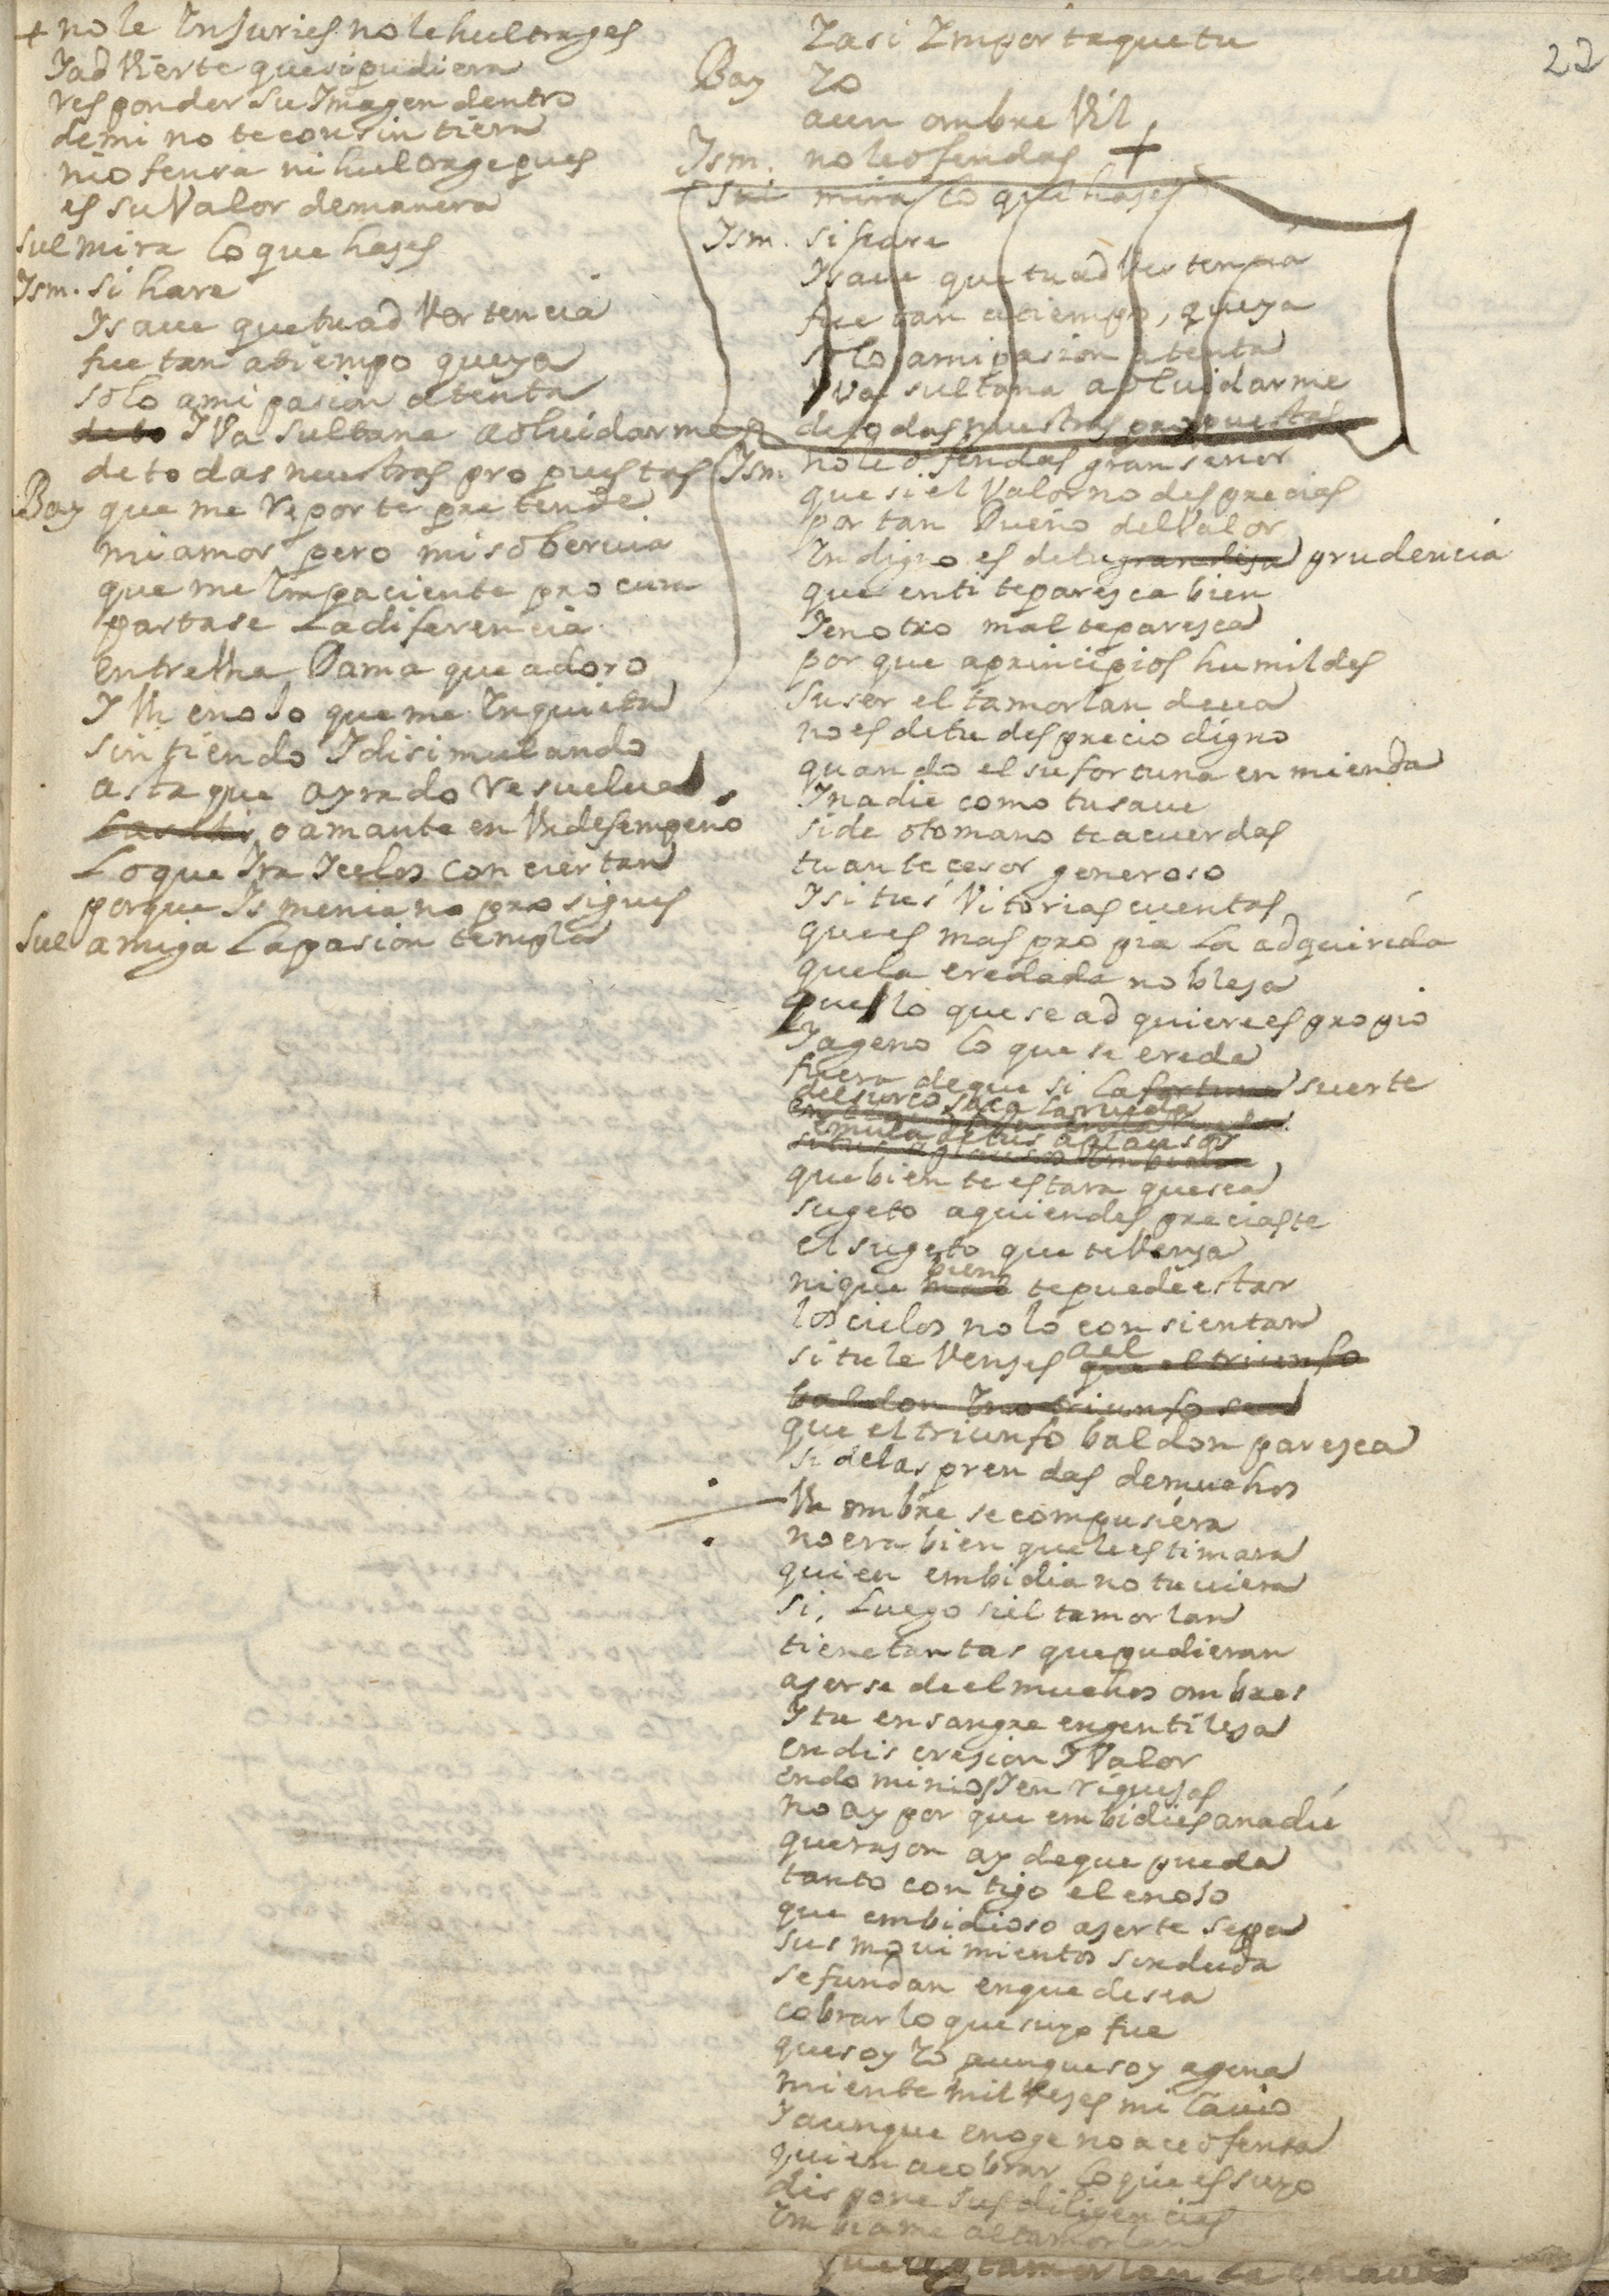 22
+ no le Injuries no le hultrages
I adVierte que si pudiera
responder su Imagen dentro
de mi no te consintiera
ni ofensa ni hultrage pues
es su Valor de manera
Sul mira lo que hases
Ism. si hare
I saue que tu adVertencia
fue tan a tiempo que ya
solo a mi pasion atenta
de to IVa Sultana a oluidarme
de todas nuestras propuestas
Bay que me reporte pretende
mi amor pero mi soberuia
que me Impaciente procura
partase La diferencia
entre Una Dama que adoro
I Un enojo que me Inquieta
sintiendo I disimulando
asta que ayrado resuelua
o amante en Un desempeno
Lo que Ira I celos conciertan
porque Ismenia no prosigues
Sul amiga La pasion templa
I asi Importa que tu
Bay Yo
a un ombre Vil
Ism. no le ofendas +
Sul mira lo que hases
Ism. si hare
I saue que tu adVertencia
fue tan a tiempo, que ya
solo a mi pasion atenta
IVa sultana a oluidarme
de todas nuestras propuestas
Ism. no le ofendas gran senor
que si el Valor no desprecias
por tan Dueño del Valor
Indigno es de tu grandesa prudencia
que en ti te paresca bien
I en otro mal te paresca
por que a principios humildes
su ser el tamorlan deua
no es de tu desprecio digno
quando el su fortuna enmienda
I nadie como tu saue
si de otomano te acuerdas
tu antecesor generoso
I si tus Vitorias cuentas
que es mas propia La adquirida
que la eredada noblesa
pues lo que se adquiere es propio
I ageno lo que se ereda
fuera de que si La fortuna suerte
del surco saca la rueda
emula de tus aplausos
que bien te estara que sea
sugeto a quien despreciaste
el sugeto que te Vensa
ni que mal bien te puede estar
los cielos no lo consientan
si tu le Venses a el que el triunfo
baldon I no triunfo sea
que el triunfo baldon paresca
si de las prendas de muchos
Un ombre se compusiera
no era bien que le estimara
quien embidia no tuuiera
si, Luego si el tamorlan
tiene tantas que pudieran
aserse de el muchos ombres
I tu en sangre en gentilesa
en discresion I Valor
en dominios I en riquesas
no ay por que embidies a nadie
que rason ay de que pueda
tanto contigo el enojo
que embidioso aserte sepa
sus mouimientos sin duda
se fundan en que desea
cobrar lo que suyo fue
que soy Yo aunque soy agena
miente mil Veses mi lauio
I aunque enoge no ace ofensa
quien a cobrar lo que es suyo
dispone sus diligencias
Imbiame al tamorlan